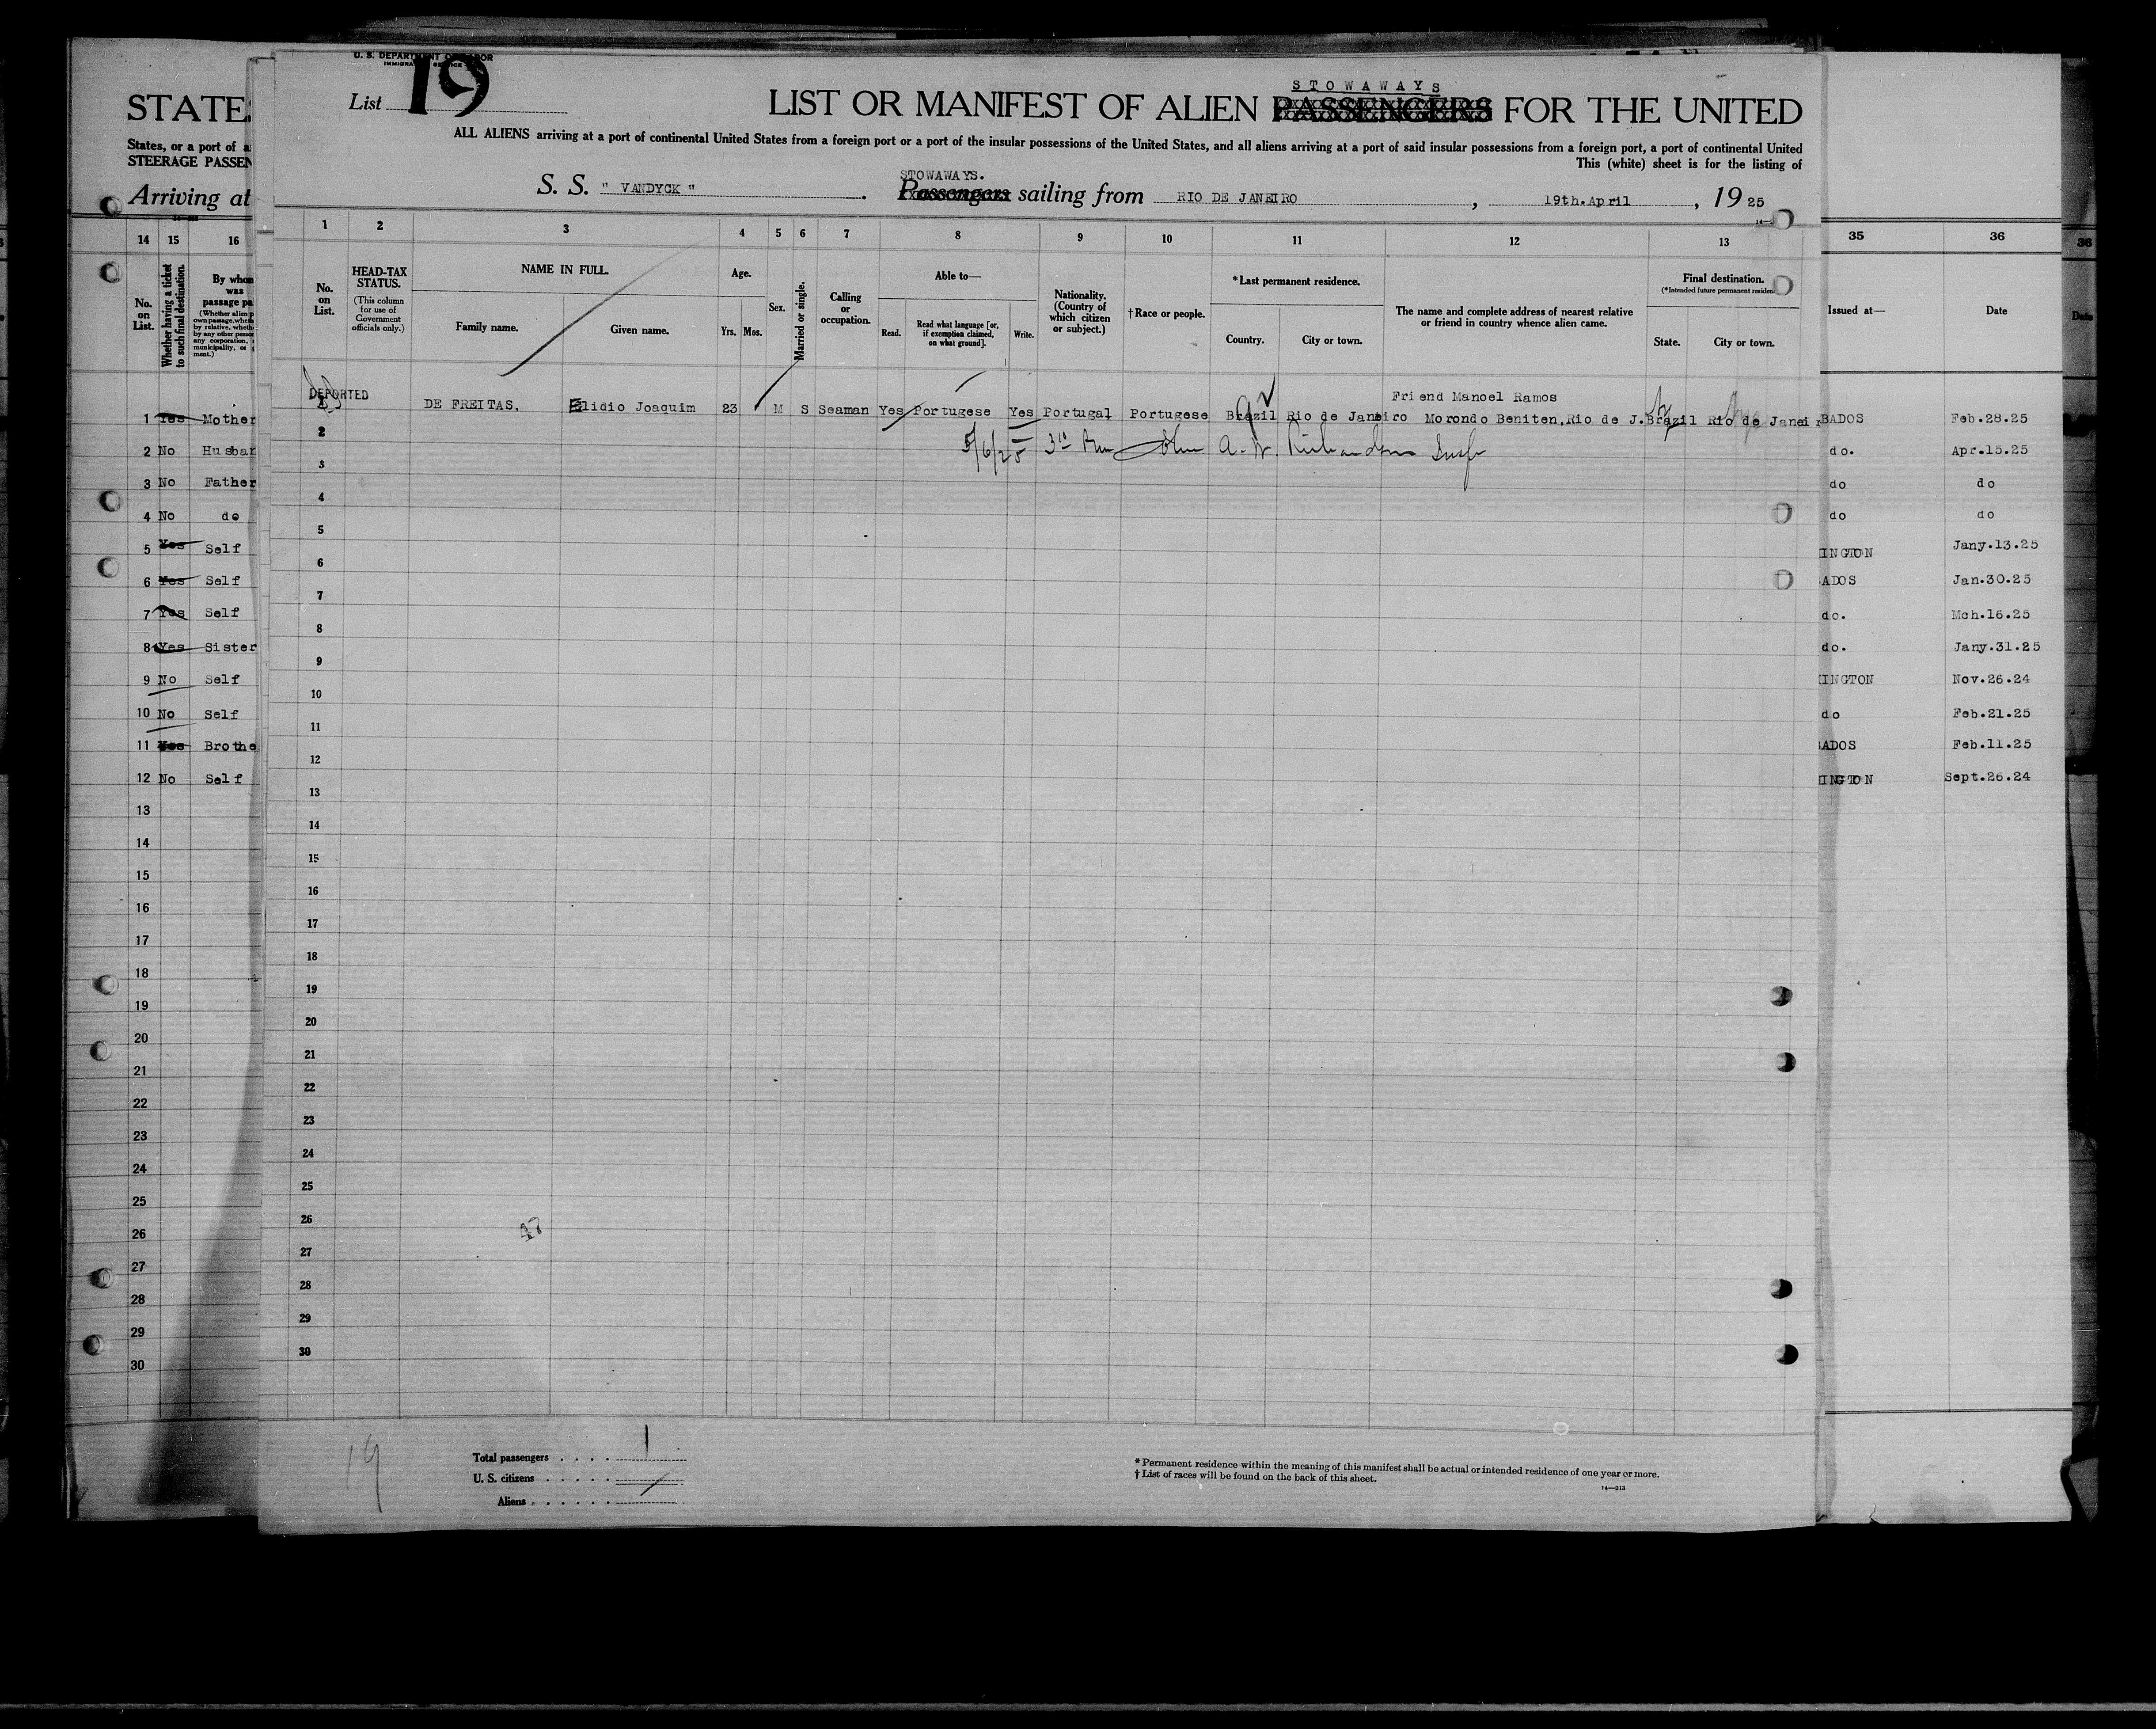 U. S. DEPARTMENT OF LABOR
IMMIGRATION SERVICE
List 19
STOWAWAYS
LIST OR MANIFEST OF ALIEN PASSENGERS FOR THE UNITED
ALL ALIENS arriving at a port of continental United States from a foreign port or a port of the insular possessions of the United States, and all aliens arriving at a port of said insular possessions from a foreign port, a port of continental United
This (white) sheet is for the listing of
STOWAWAYS.
S. S. " VANDYCK " Passengers sailing from RIO DE JANEIRO, 19th.April, 1925
1 2 3 4 5 6 7 8 9 10 11 12 13
No. on List.
HEAD-TAX STATUS.
(This column for use of Government officials only.)
NAME IN FULL.
Family name. Given name.
Age.
Yrs. Mos.
Sex.
Married or single.
Calling or occupation.
Able to—
Read. Read what language [or, if exemption claimed, on what ground]. Write.
Nationality. (Country of which citizen or subject.)
† Race or people.
* Last permanent residence.
Country. City or town.
The name and complete address of nearest relative or friend in country whence alien came.
Final destination.
State. City or town.
DEPORTED
Friend Manoel Ramos
1 DE FREITAS, Elidio Joaquim 23 M S Seaman Yes Portugese Yes Portugal Portugese Brazil Rio de Janeiro Morondo Beniten,Rio de J. Brazil Rio de Janei
5/6/25 A. W. Richardson
2
3
4
5
6
7
8
9
10
11
12
13
14
15
16
17
18
19
20
21
22
23
24
25
26
47
27
28
29
30
19
Total passengers 1
U. S. citizens
Aliens
* Permanent residence within the meaning of this manifest shall be actual or intended residence of one year or more.
† List of races will be found on the back of this sheet.
14—213
STATES
States, or a port of
STEERAGE PASSEN
Arriving at
14 15 16
No. on List.
Whether having a ticket to such final destination.
By whom was passage
1 Yes Mother
2 No Husban
3 No Father
4 No do
5 Yes Self
6 Yes Self
7 Yes Self
8 Yes Sister
9 No Self
10 No Self
11 Yes Brothe
12 No Self
13
14
15
16
17
18
19
20
21
22
23
24
25
26
27
28
29
30
35 36 36
Issued at— Date Date
BADOS Feb.28.25
do. Apr.15.25
do do
do do
INGTON Jany.13.25
ADOS Jan.30.25
do. Mch.16.25
do. Jany.31.25
INGTON Nov.26.24
do Feb.21.25
ADOS Feb.11.25
INGTON Sept.26.24